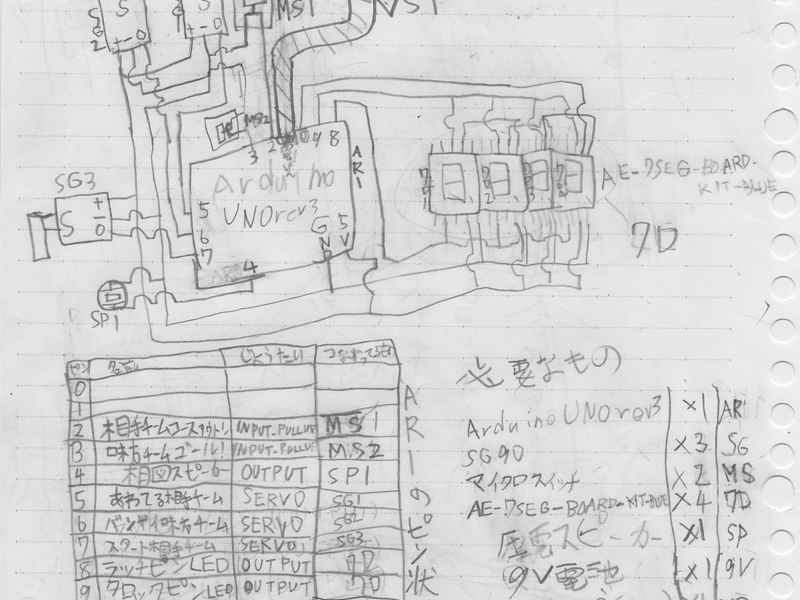 S
S
MS1
VS1
SG2
+-0
+-0
MS2
3 2 9 8
Arduino
UNOrev3
AR1
5
6
7
4
GND
5V
SG3
S
+-0
SP1
7D1 7D2 7D3 7D4
AE-7SEG-BOARD-
KIT-BLUE
7D
ピン 名前 じょうたい つながってるもの
0
1
2 相手チームコースアウト! INPUT-PULLUP MS1
3 味方チームゴール! INPUT-PULLUP MS2
4 相図スピーカー OUTPUT SP1
5 あわてる相手チーム SERVO SG1
6 バンザイ味方チーム SERVO SG2
7 スタート相手チーム SERVO SG3
8 ラッチピンLED OUTPUT 7D
9 クロックピンLED OUTPUT 7D
AR1のピン状
必要なもの
Arduino UNOrev3 ×1 AR1
SG90 ×3 SG
マイクロスイッチ ×2 MS
AE-7SEG-BOARD-KIT-BLUE ×4 7D
圧電スピーカー ×1 SP
9V電池 ×1 9V